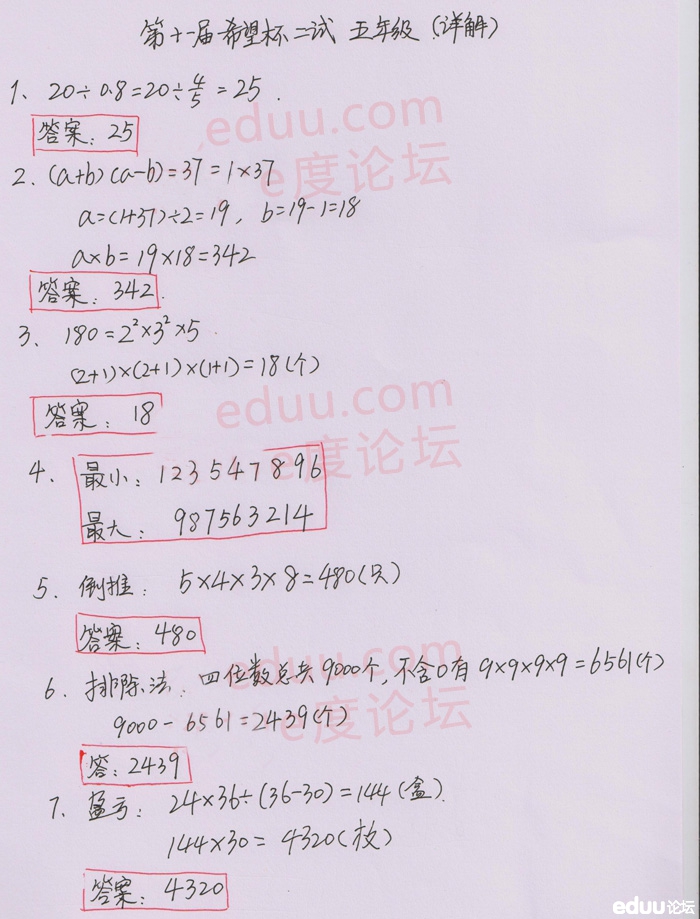 第十一届希望杯二试 五年级 (详解)
1、 20÷0.8=20÷4/5=25.
答案: 25
2、 (a+b)(a-b)=37=1×37
a=(1+37)÷2=19, b=19-1=18
a×b=19×18=342
答案: 342.
3、 180=2²×3²×5
(2+1)×(2+1)×(1+1)=18(个)
答案: 18
4、 最小: 123547896
最大: 987563214
5、 倒推: 5×4×3×8=480(只)
答案: 480
6、 排除法. 四位数总共9000个,不含0有9×9×9×9=6561(个)
9000-6561=2439(个)
答: 2439
7、 盈亏: 24×36÷(36-30)=144(盒).
144×30=4320(枚)
答案: 4320
eduu.com
e度论坛
eduu.com
e度论坛
e度论坛
eduu论坛